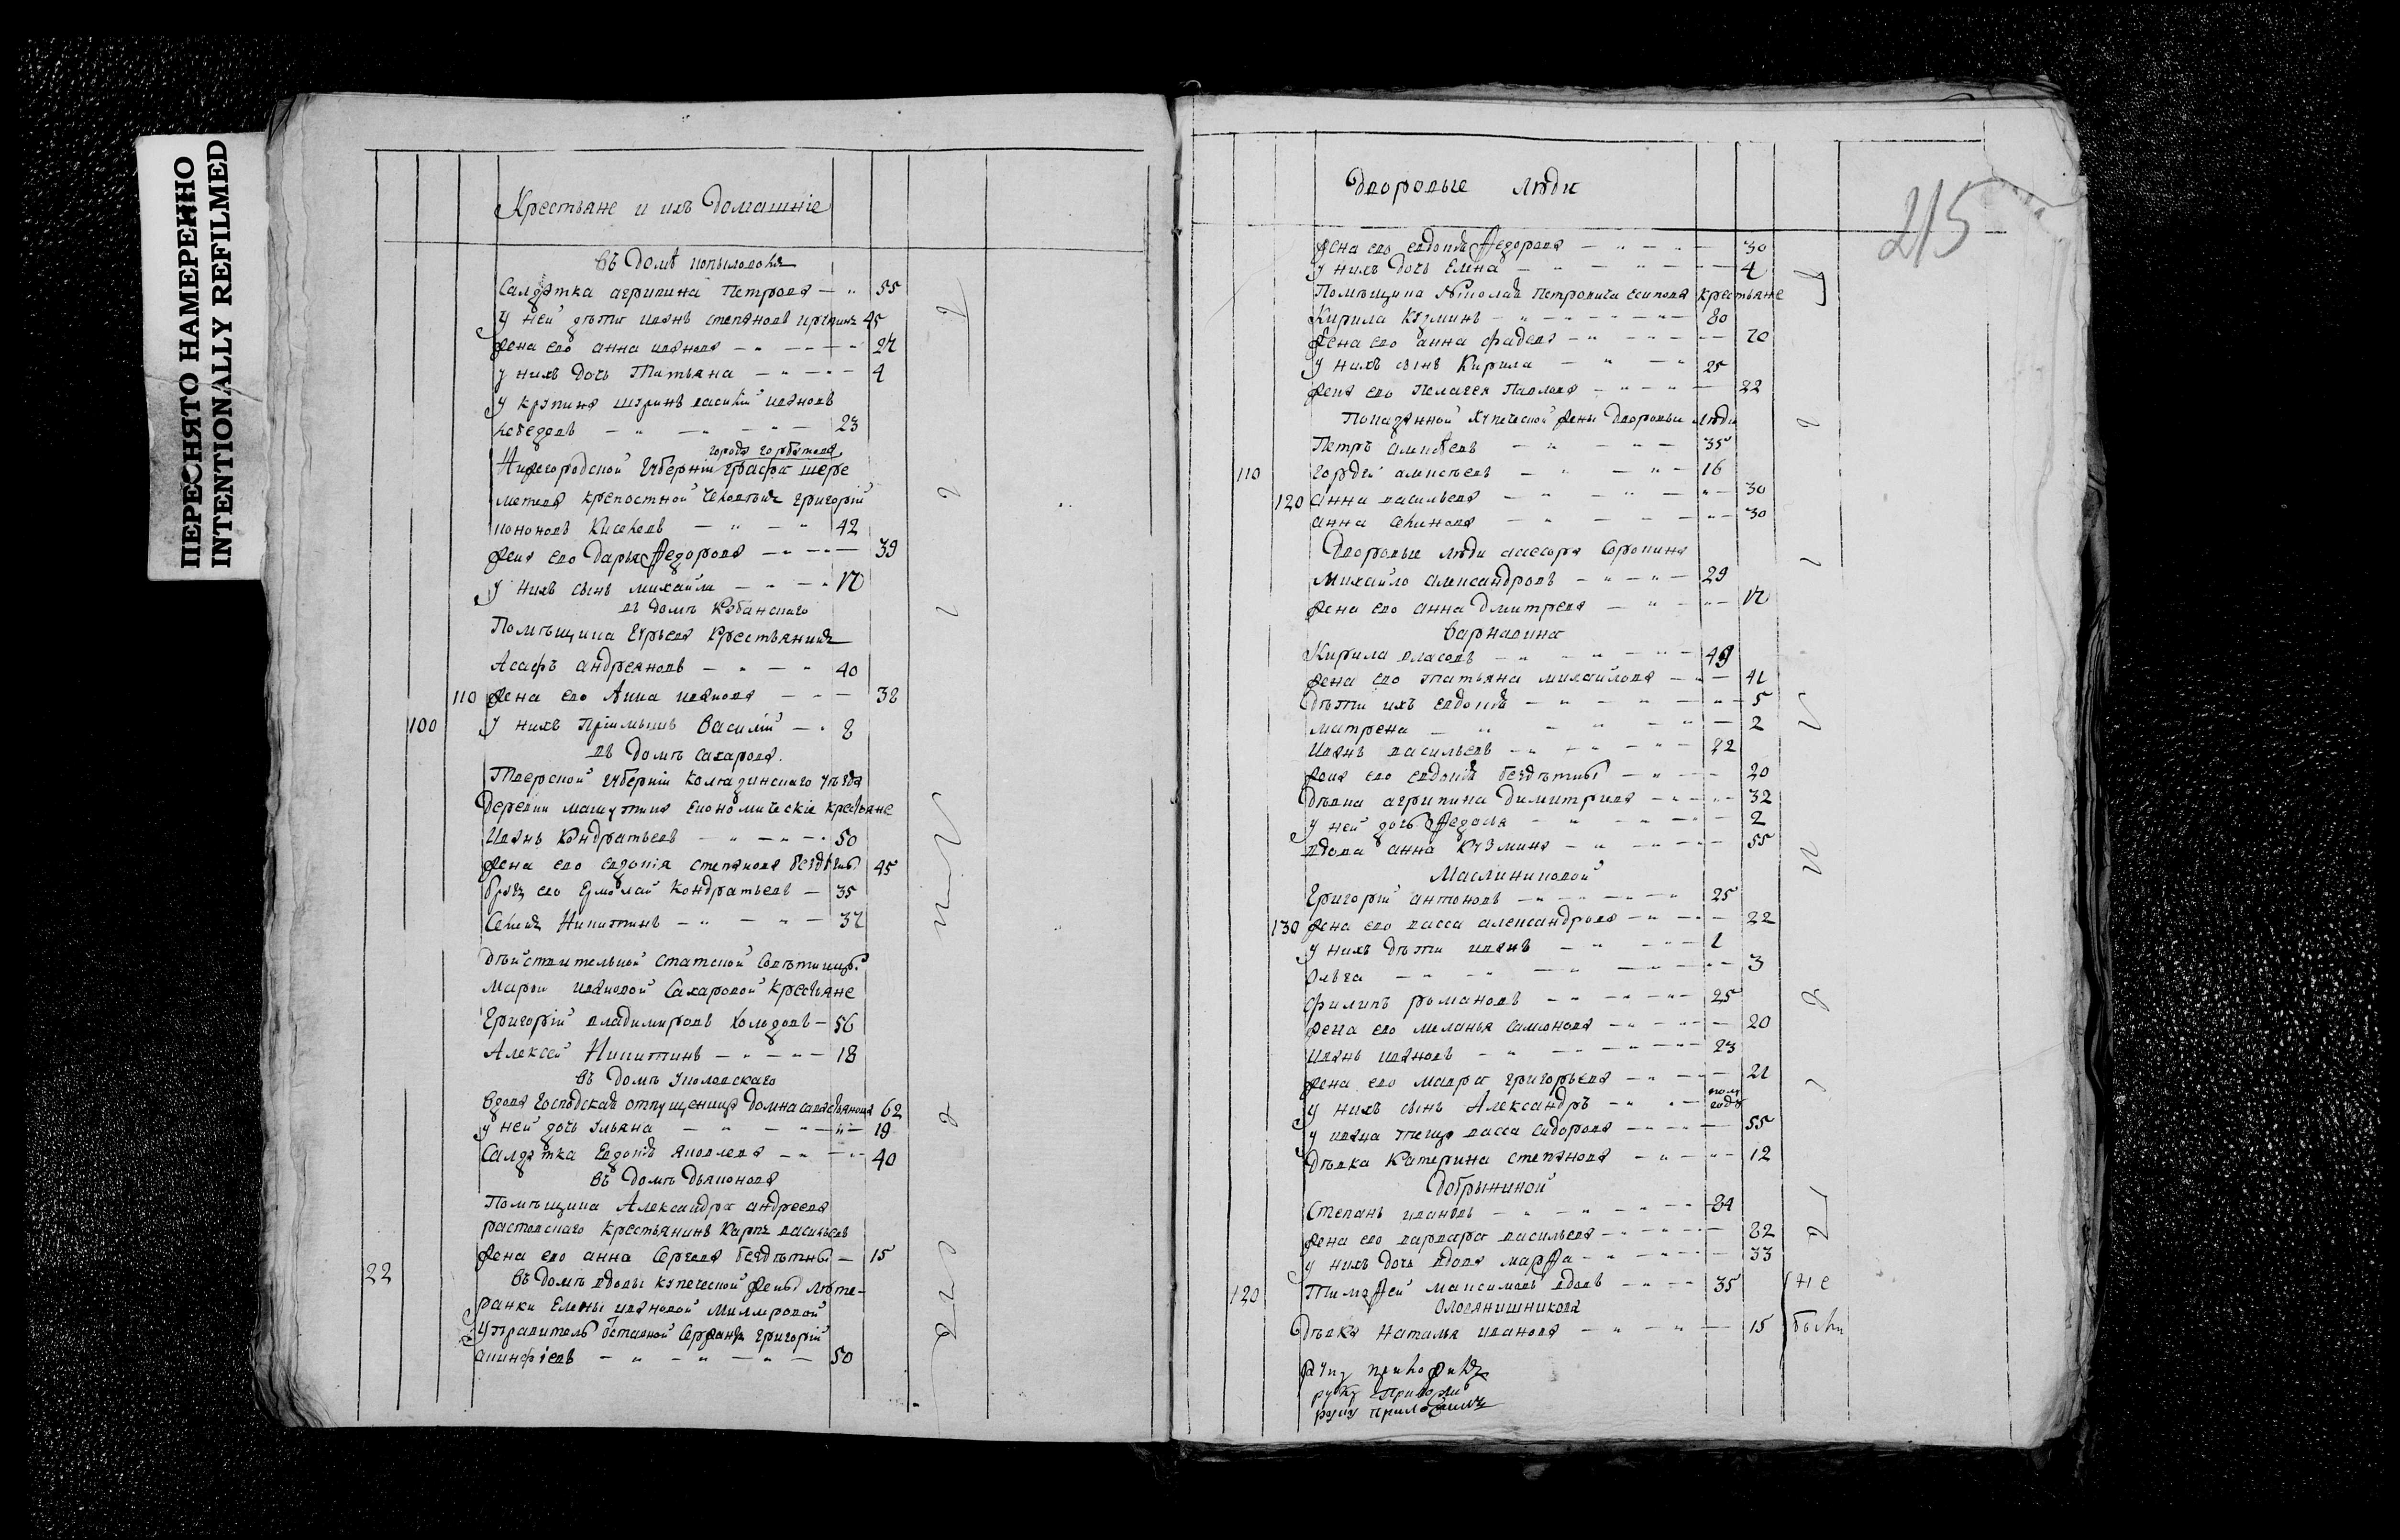 ПЕРЕСНЯТО НАМЕРЕННО
INTENTIONALLY REFILMED
Крестьяне и ихъ Домашніе
въ Домѣ
Салдатка агрипина Петрова 55
у ней дѣти иванъ степановъ 45
Жена его анна иванова 24
у нихъ дочь Татьяна 4
у шуринъ василій ивановъ
23
города горбатова
Нижегородской Губерніи графа шере
метева крепостной человѣкъ григорій
Киселевъ 42
Жена его Дарья Ѳедорова 39
у нихъ сынъ михайла
въ домѣ Кабанскаго
Помѣщика Гурьева Крестьянинъ
Асафъ андреяновъ 40
110 Жена его Анна иванова 38
100 у нихъ Пріимышъ Василій 8
въ домѣ сахарова.
Тверской губерніи Колязинскаго уѣзда
Деревни економическіе крестьяне
Иванъ Кондратьевъ 50
Жена его евдокія степанова бездѣтны 45
братъ его Ермолай Кондратьевъ 35
Никитинъ 37
Дѣйствительной статской совѣтницы
Марьи ивановой Сахаровой крестьяне
Григорій владимировъ Холодовъ 56
Алексей Никитинъ 18
въ домѣ
вдова Господская отпущеница домна савастьянова 62
у ней дочь ульяна 19
Салдатка Евдокія яковлева 40
въ домѣ Дьяконова
Помѣщика Александра андреева
растовскаго крестьянинъ Карпъ васильевъ
Жена его анна Сергеева бездѣтны 15
22 въ домѣ вдовы купеческой жены люте-
ранки Елены ивановой Миллеровой
Управитель отставной Сержантъ григорій
50
Дворовые люди
215
Жена его евдокія Ѳедорова 30
у нихъ дочь Елена 4
Помѣщика Николая Петровича есипова крестьяне
Кирила Кузминъ 80
Жена его анна фадеева 70
у нихъ сынъ Кирила 25
Жена его Пелагея Павлова 22
Показанной купеческой жены дворовые люди
Петръ алексѣевъ 35
110 гордей алексѣевъ 16
120 анна васильева 30
анна 30
Дворовые люди асесора Сорокина
Михайло александровъ 29
Жена его анна Дмитрева
Варнавина
Кирила власовъ 49
Жена его татьяна михайлова 41
Дѣти ихъ евдокія 5
матрена 2
Иванъ васильевъ 22
Жена его евдокія бездѣтны 20
Дѣвка агрипина димитриева 32
у ней дочь Ѳедосья 2
вдова анна Кузмина 55
Маслениковой
Григорій антоновъ 25
130 Жена его васса александрова 22
у нихъ дѣти иванъ 1
Ольга 3
филипъ романовъ 25
Жена его меланья самсонова 20
Иванъ ивановъ 23
Жена его мавра григорьева 21
у нихъ сынъ Александръ пол года
у ивана теща васса сидорова 55
Дѣвка Катерина степанова 12
Добрыниной
Степанъ ивановъ 84
Жена его варвара васильева 82
у нихъ дочь вдова марѳа 33
120 Тимаѳей максимовъ вдовъ 35
не
Оловянишникова
Дѣвка Наталья иванова 15
были
руку приложилъ